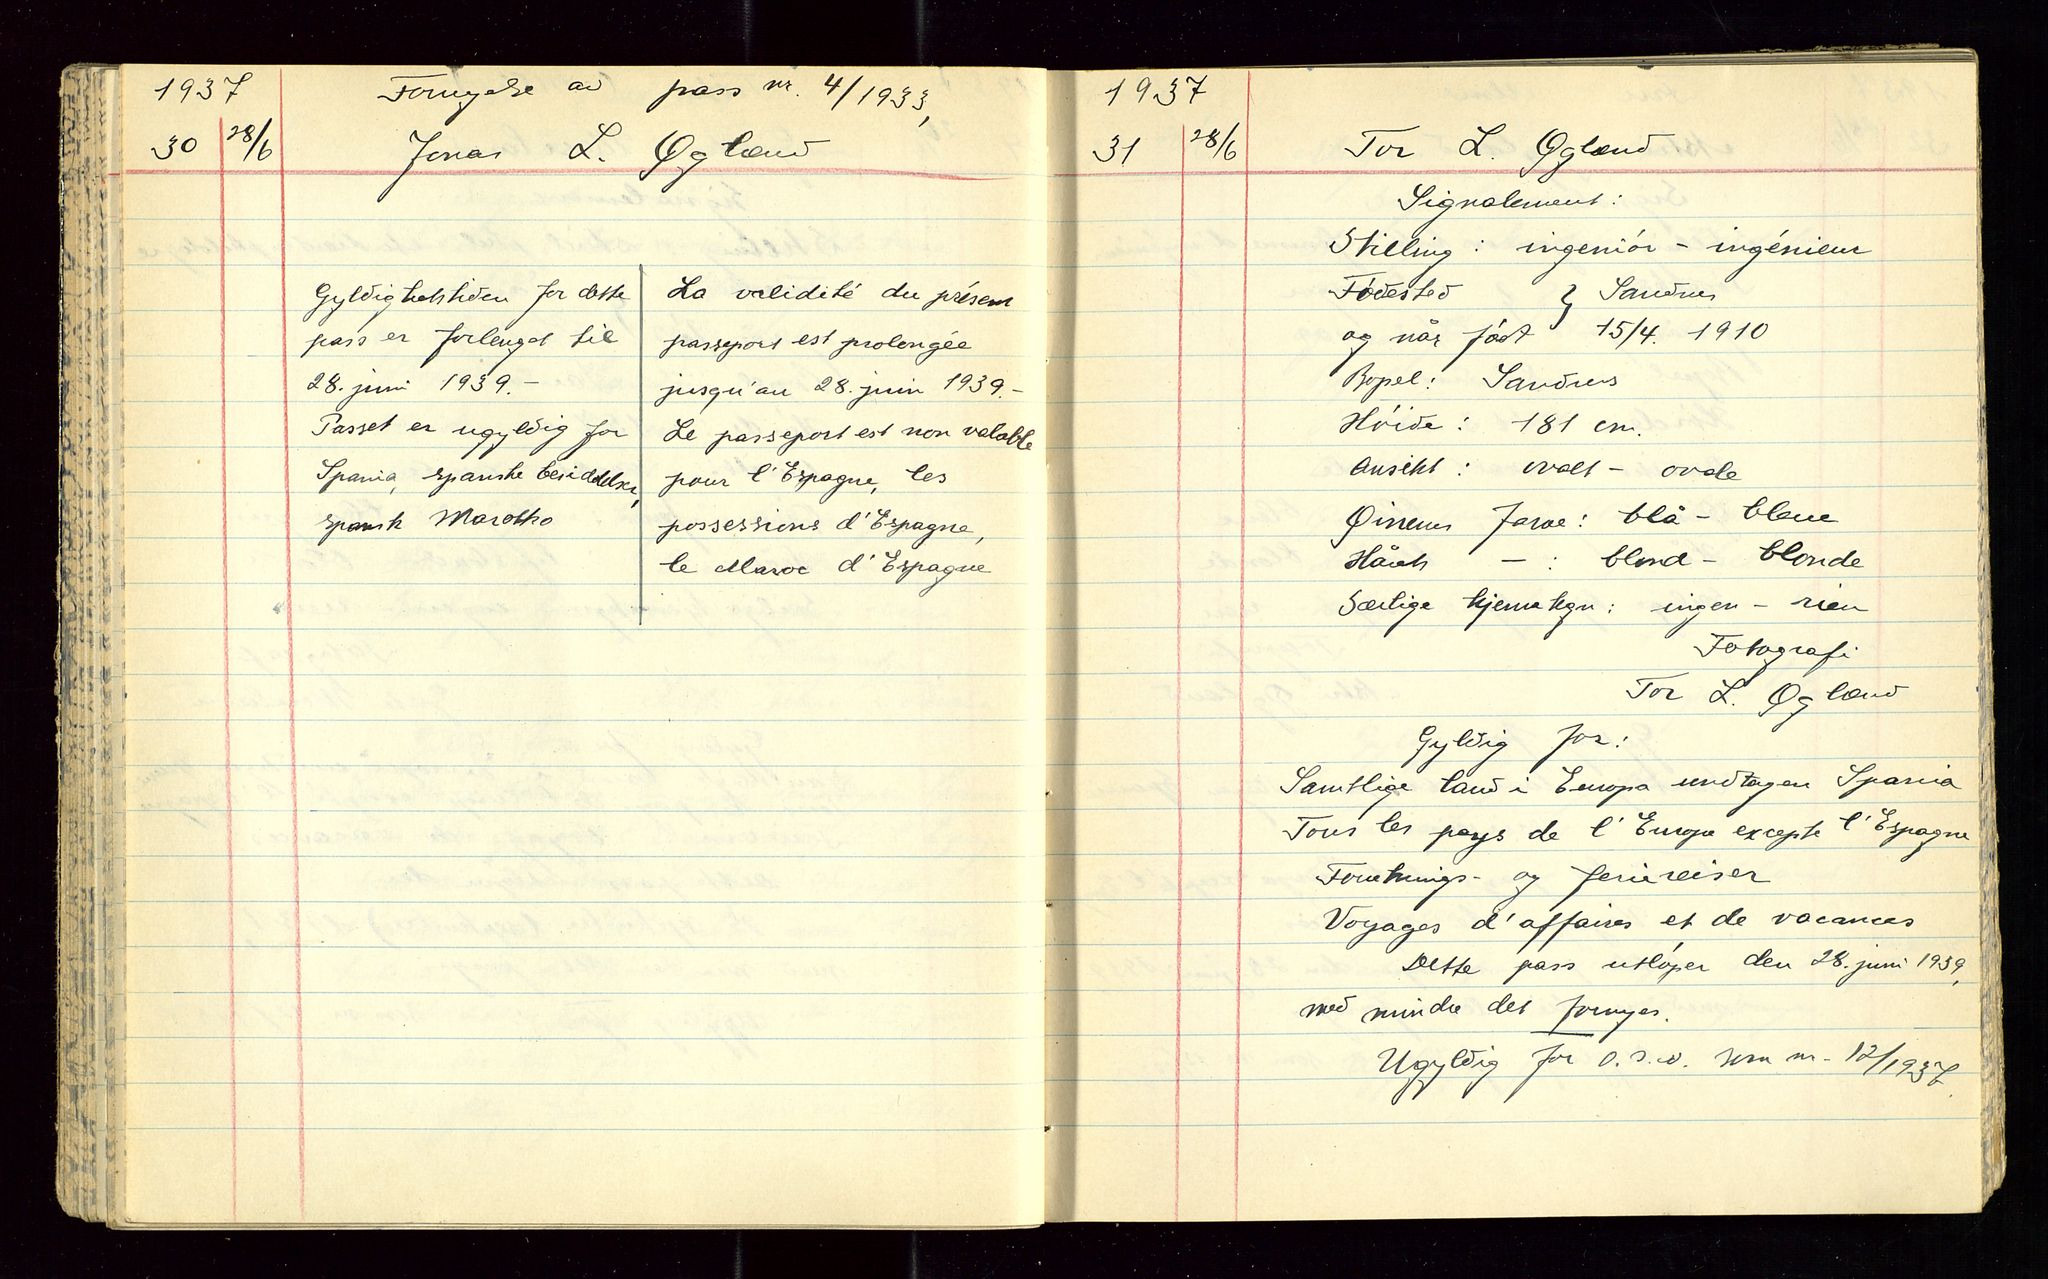 1937 Fornyelse av pass nr. 4/1933,
30 28/6 Jonas L. Øgland
Gyldighetstiden for dette
pass er forlenget til
28. juni 1939. -
Passet er ugyldig for
Spania, spanske besiddelser,
spansk Marokko
La validité du présent
passeport est prolongée
jusqu'au 28. juin 1939. -
Le passeport est non valable
pour l'Espagne, les
possessions d'Espagne,
le Maroc d'Espagne
1937
31 28/6 Tor L. Øgland
Signalement:
Stilling: ingeniór - ingénieur
Fódested } Sandnes
og når fódt 15/4. 1910
Bopel: Sandnes
Hóide: 181 cm.
Ansikt: ovalt - ovale
Øinenes farve: blå - bleue
Hårets - : blond - blonde
Særlige kjennetegn: ingen - rien
Fotografi
Tor L. Øgland
Gyldig for:
Samtlige land i Europa undtagen Spania
Tous les pays de l'Europe excepte l'Espagne
Forretnings- og feriereiser
Voyages d'affaires et de vacances
Dette pass utlóper den 28. juni 1939,
med mindre det fornyes.
Ugyldig for o.s.v. som nr. 12/1937.